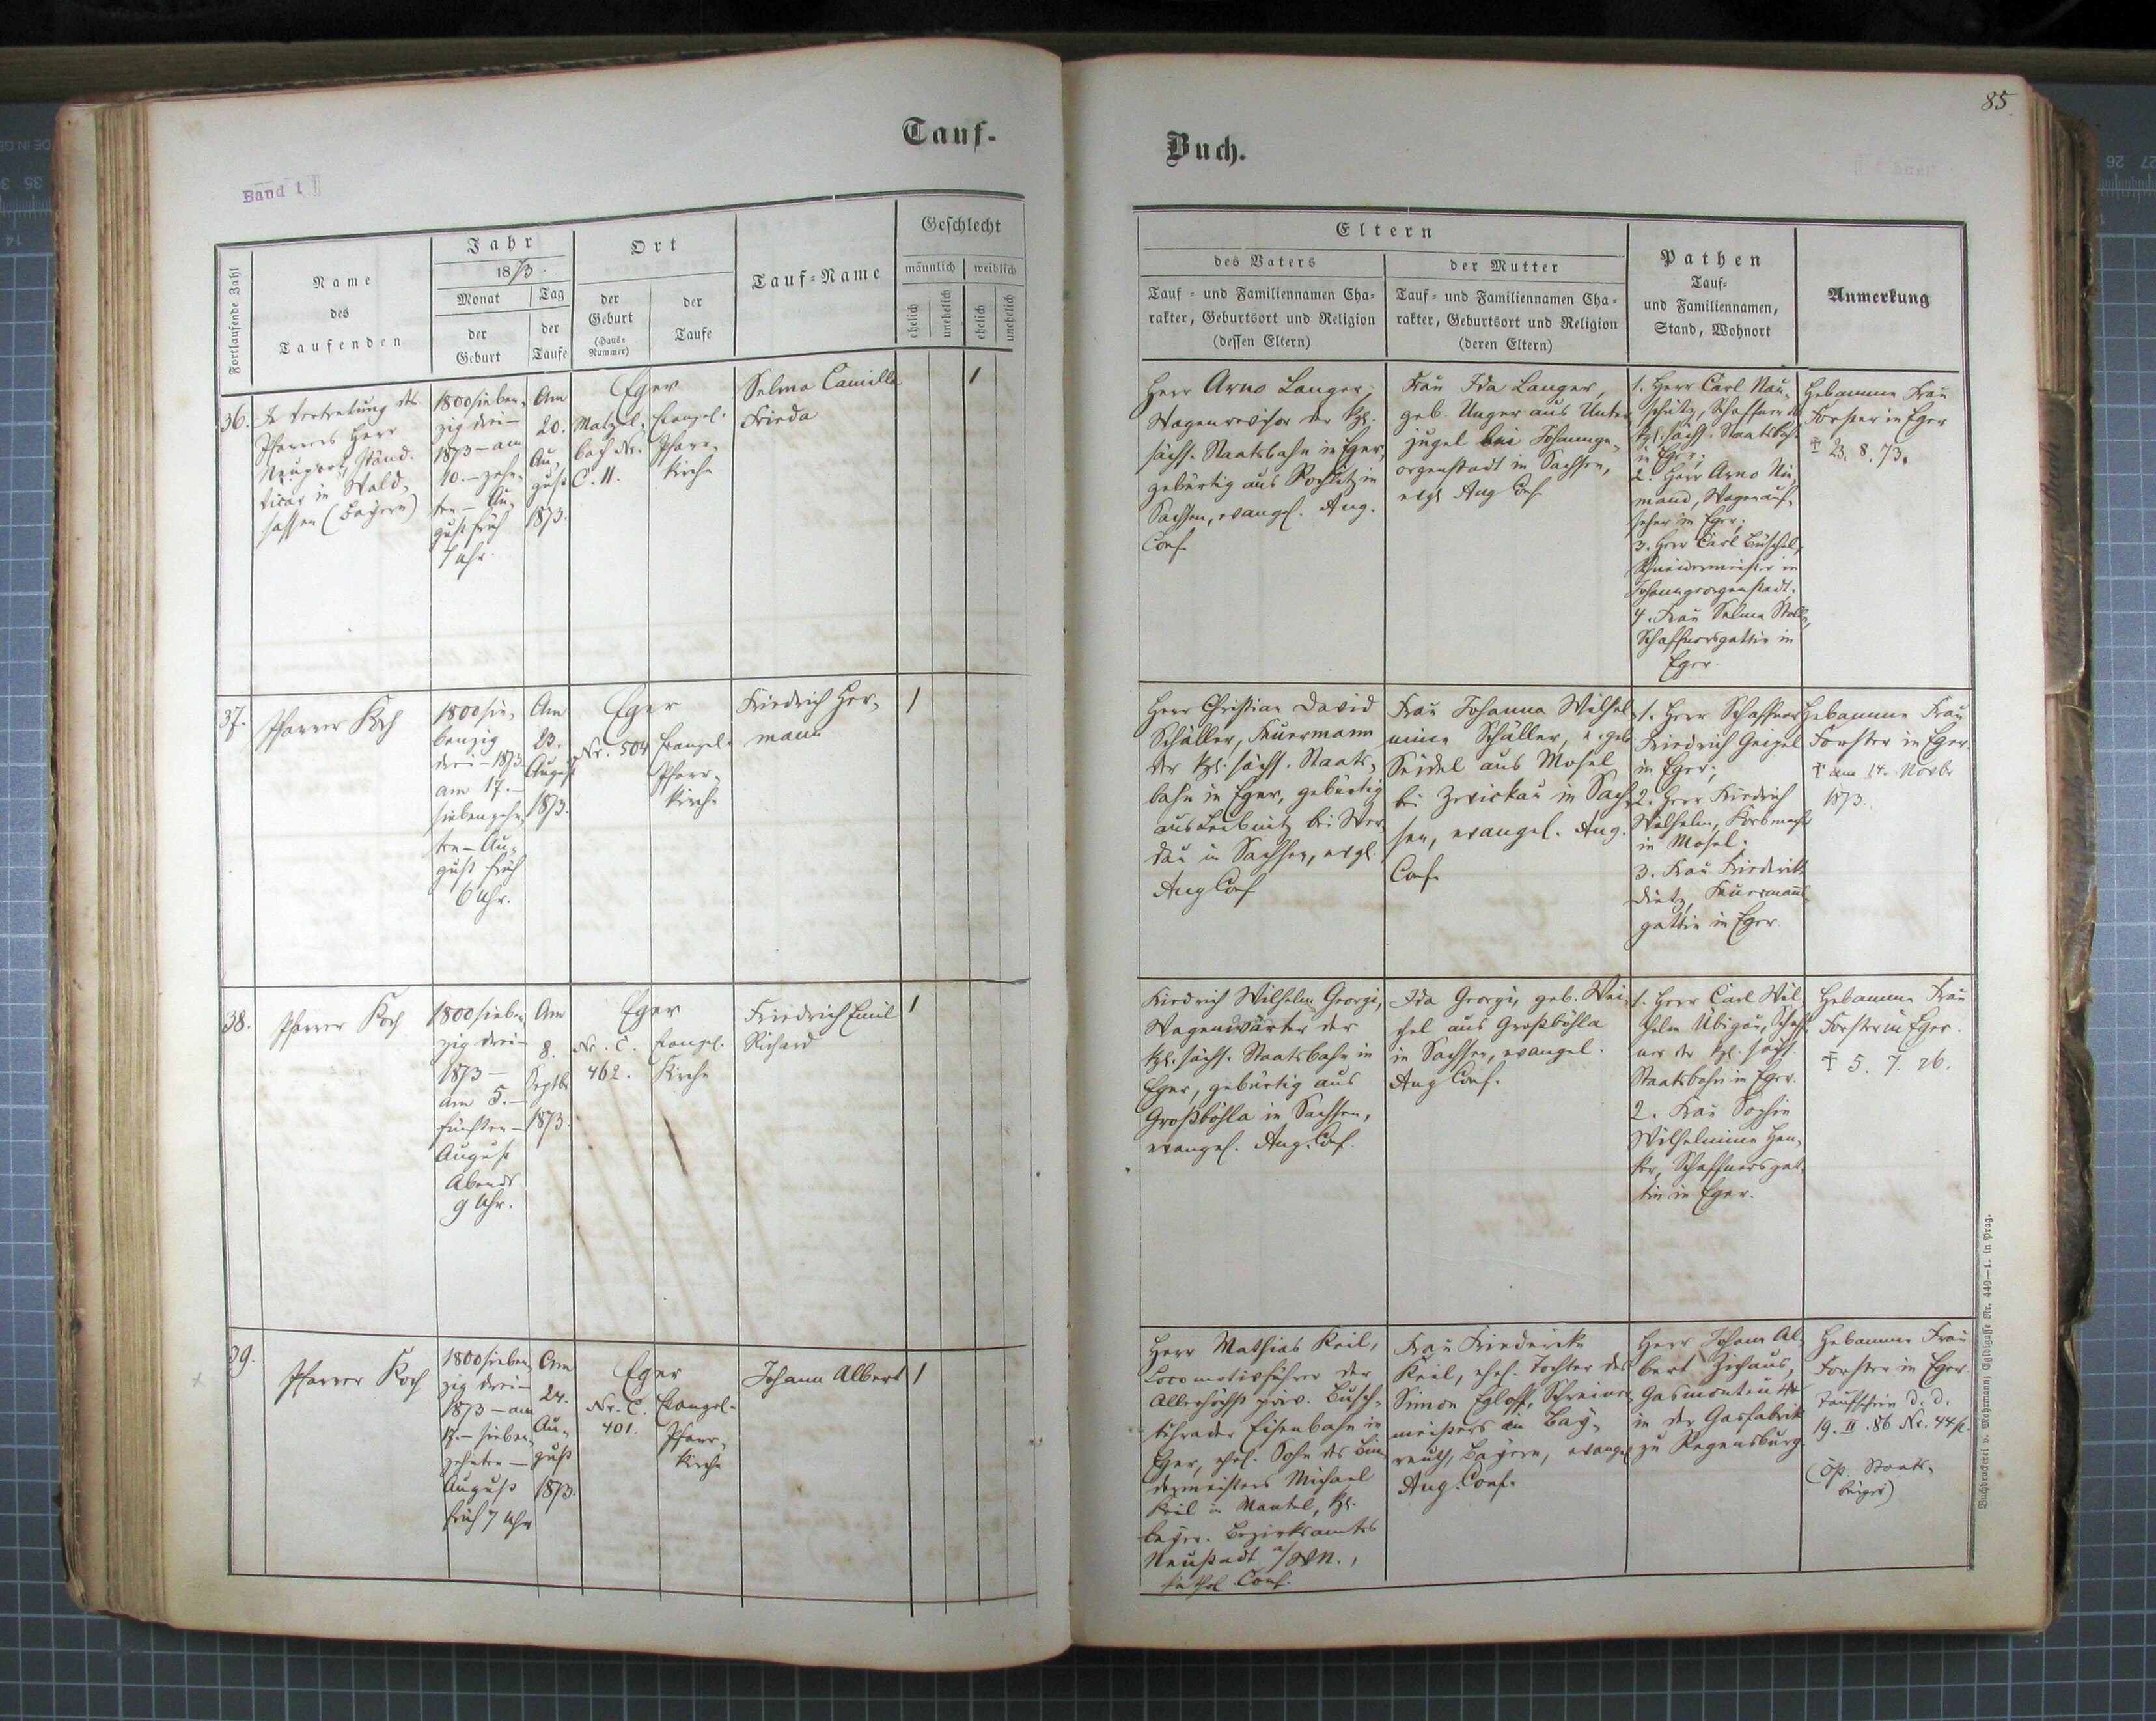 Tauf-
Buch.
85
Band 1
Fortlaufende Zahl
Name
des
Taufenden
Jahr
1873.
Monat
der
Geburt
Tag
der
Taufe
Ort
der
Geburt
(Haus-
Nummer)
der
Taufe
Tauf-Name
Geschlecht
männlich
weiblich
ehelich
unehelich
ehelich
unehelich
Eltern
des Vaters
Tauf- und Familiennamen Cha-
rakter, Geburtsort und Religion
(dessen Eltern)
der Mutter
Tauf- und Familiennamen Cha-
rakter, Geburtsort und Religion
(deren Eltern)
Pathen
Tauf-
und Familiennamen,
Stand, Wohnort
Anmerkung
36.
In Vertretung des
Pfarrers Herr
Ständ.
Vicar in Wald-
sassen (Bayern)
1800 sieben-
zig drei-
1873 - am
10. - zehn-
ten - Au-
gust früh
7 Uhr.
Am
20.
Au-
gust
1873.
Eger
bach Nr.
C. 11.
Evangel.
Pfarr-
kirche
Selma Camilla
Frieda
1
Herr Arno Langer,
Wagenrevisor der kgl.
sächs. Staatsbahn in Eger,
gebürtig aus Rochlitz in
Sachsen, evangel. Aug.
Conf.
Frau Ida Langer,
geb. Unger aus Unter
jugel bei Johannge-
orgenstadt in Sachsen,
evgl. Aug Conf
1. Herr Carl Nau-
schütz, Schaffner der
kgl. sächs. Staatsbah
in Eger;
2. Herr Arno
mand, Wagenauf-
seher in Eger;
3. Herr Carl Büschel,
Schneidermeister in
Johanngeorgenstadt.
4. Frau Selma
Schaffnersgattin in
Eger.
Hebamme Frau
Forster in Eger
† 23. 8. 73.
37.
Pfarrer Koch
1800 sie-
benzig
drei - 1873
am 17. -
siebenzehn-
ten - Au-
gust früh
6 Uhr.
Am
23.
August
1873.
Eger
Nr. 504
Evangel.
Pfarr-
kirche
Friedrich Her-
mann
1
Herr Christian David
Schäller, Feuermann
der kgl. sächs. Staats-
bahn in Eger, gebürtig
aus Leubnitz bei Wer-
dau in Sachsen, evgl.
Aug Conf
Frau Johanna Wilhel
mine Schäller, geb
Seidel aus Mosel
bei Zwickau in Sach
sen, evangel. Aug.
Conf.
1. Herr Schaffner
Friedrich Geipel
in Eger;
2. Herr Friedrich
Wilhelm, Korbmach
in Mosel;
3. Frau Friederike
Dietz, Feuermanns-
gattin in Eger.
Hebamme Frau
Forster in Eger.
† am 14. Novbr
1873.
38.
Pfarrer Koch
1800 sieben
zig drei-
1873 -
am 5. -
fünften -
August
Abends
9 Uhr.
Am
8.
Septbr
1873.
Eger
Nr. C.
462.
Evangel.
Kirche
Friedrich Emil
Richard
1
Friedrich Wilhelm Georgi,
Wagenwärter der
kgl. sächs. Staatsbahn in
Eger, gebürtig aus
Großböhla in Sachsen,
evangel. Aug. Conf.
Ida Georgi, geb. Wei-
chel aus Großböhla
in Sachsen, evangel.
Aug Conf.
1. Herr Carl Wil
helm Übigau, Schaff
ner der kgl. sächs.
Staatsbahn in Eger.
2. Frau Sophie
Wilhelmine Hen-
ker, Schaffnersgat-
tin in Eger.
Hebamme Frau
Forster in Eger.
† 5. 7. 76.
39.
Pfarrer Koch
1800 sieben
zig drei-
1873 - am
17. - sieben-
zehnten -
August
früh 7 Uhr
Am
24.
Au-
gust
1873.
Eger
Nr. C.
401.
Evangel.
Pfarr-
kirche
Johann Albert
1
Herr Mathias Keil,
Locomotivführer der
Allerhöchst priv. Busch-
těhrader Eisenbahn in
Eger, ehel. Sohn des Bin
dermeisters Michael
Keil in Mantel, kgl.
bayer. Bezirksamtes
Neustadt a/WN.,
kathol. Conf.
Frau Friedericke
Keil, ehel. Tochter des
Simon Egloff, Schreiner-
meisters in Bay-
reuth, Bayern, evangel
Aug. Conf.
Herr Johann Al-
bert Zichaus,
Gasmonteur
in der Gasfabrik
zu Regensburg
Hebamme Frau
Forster in Eger
Taufschein d. d.
19. II. 86 Nr. 44
(öst. Staats-
bürger)
Buchdruckerei v. Mohrmann, Egidigasse Nr. 449-1. in Prag.